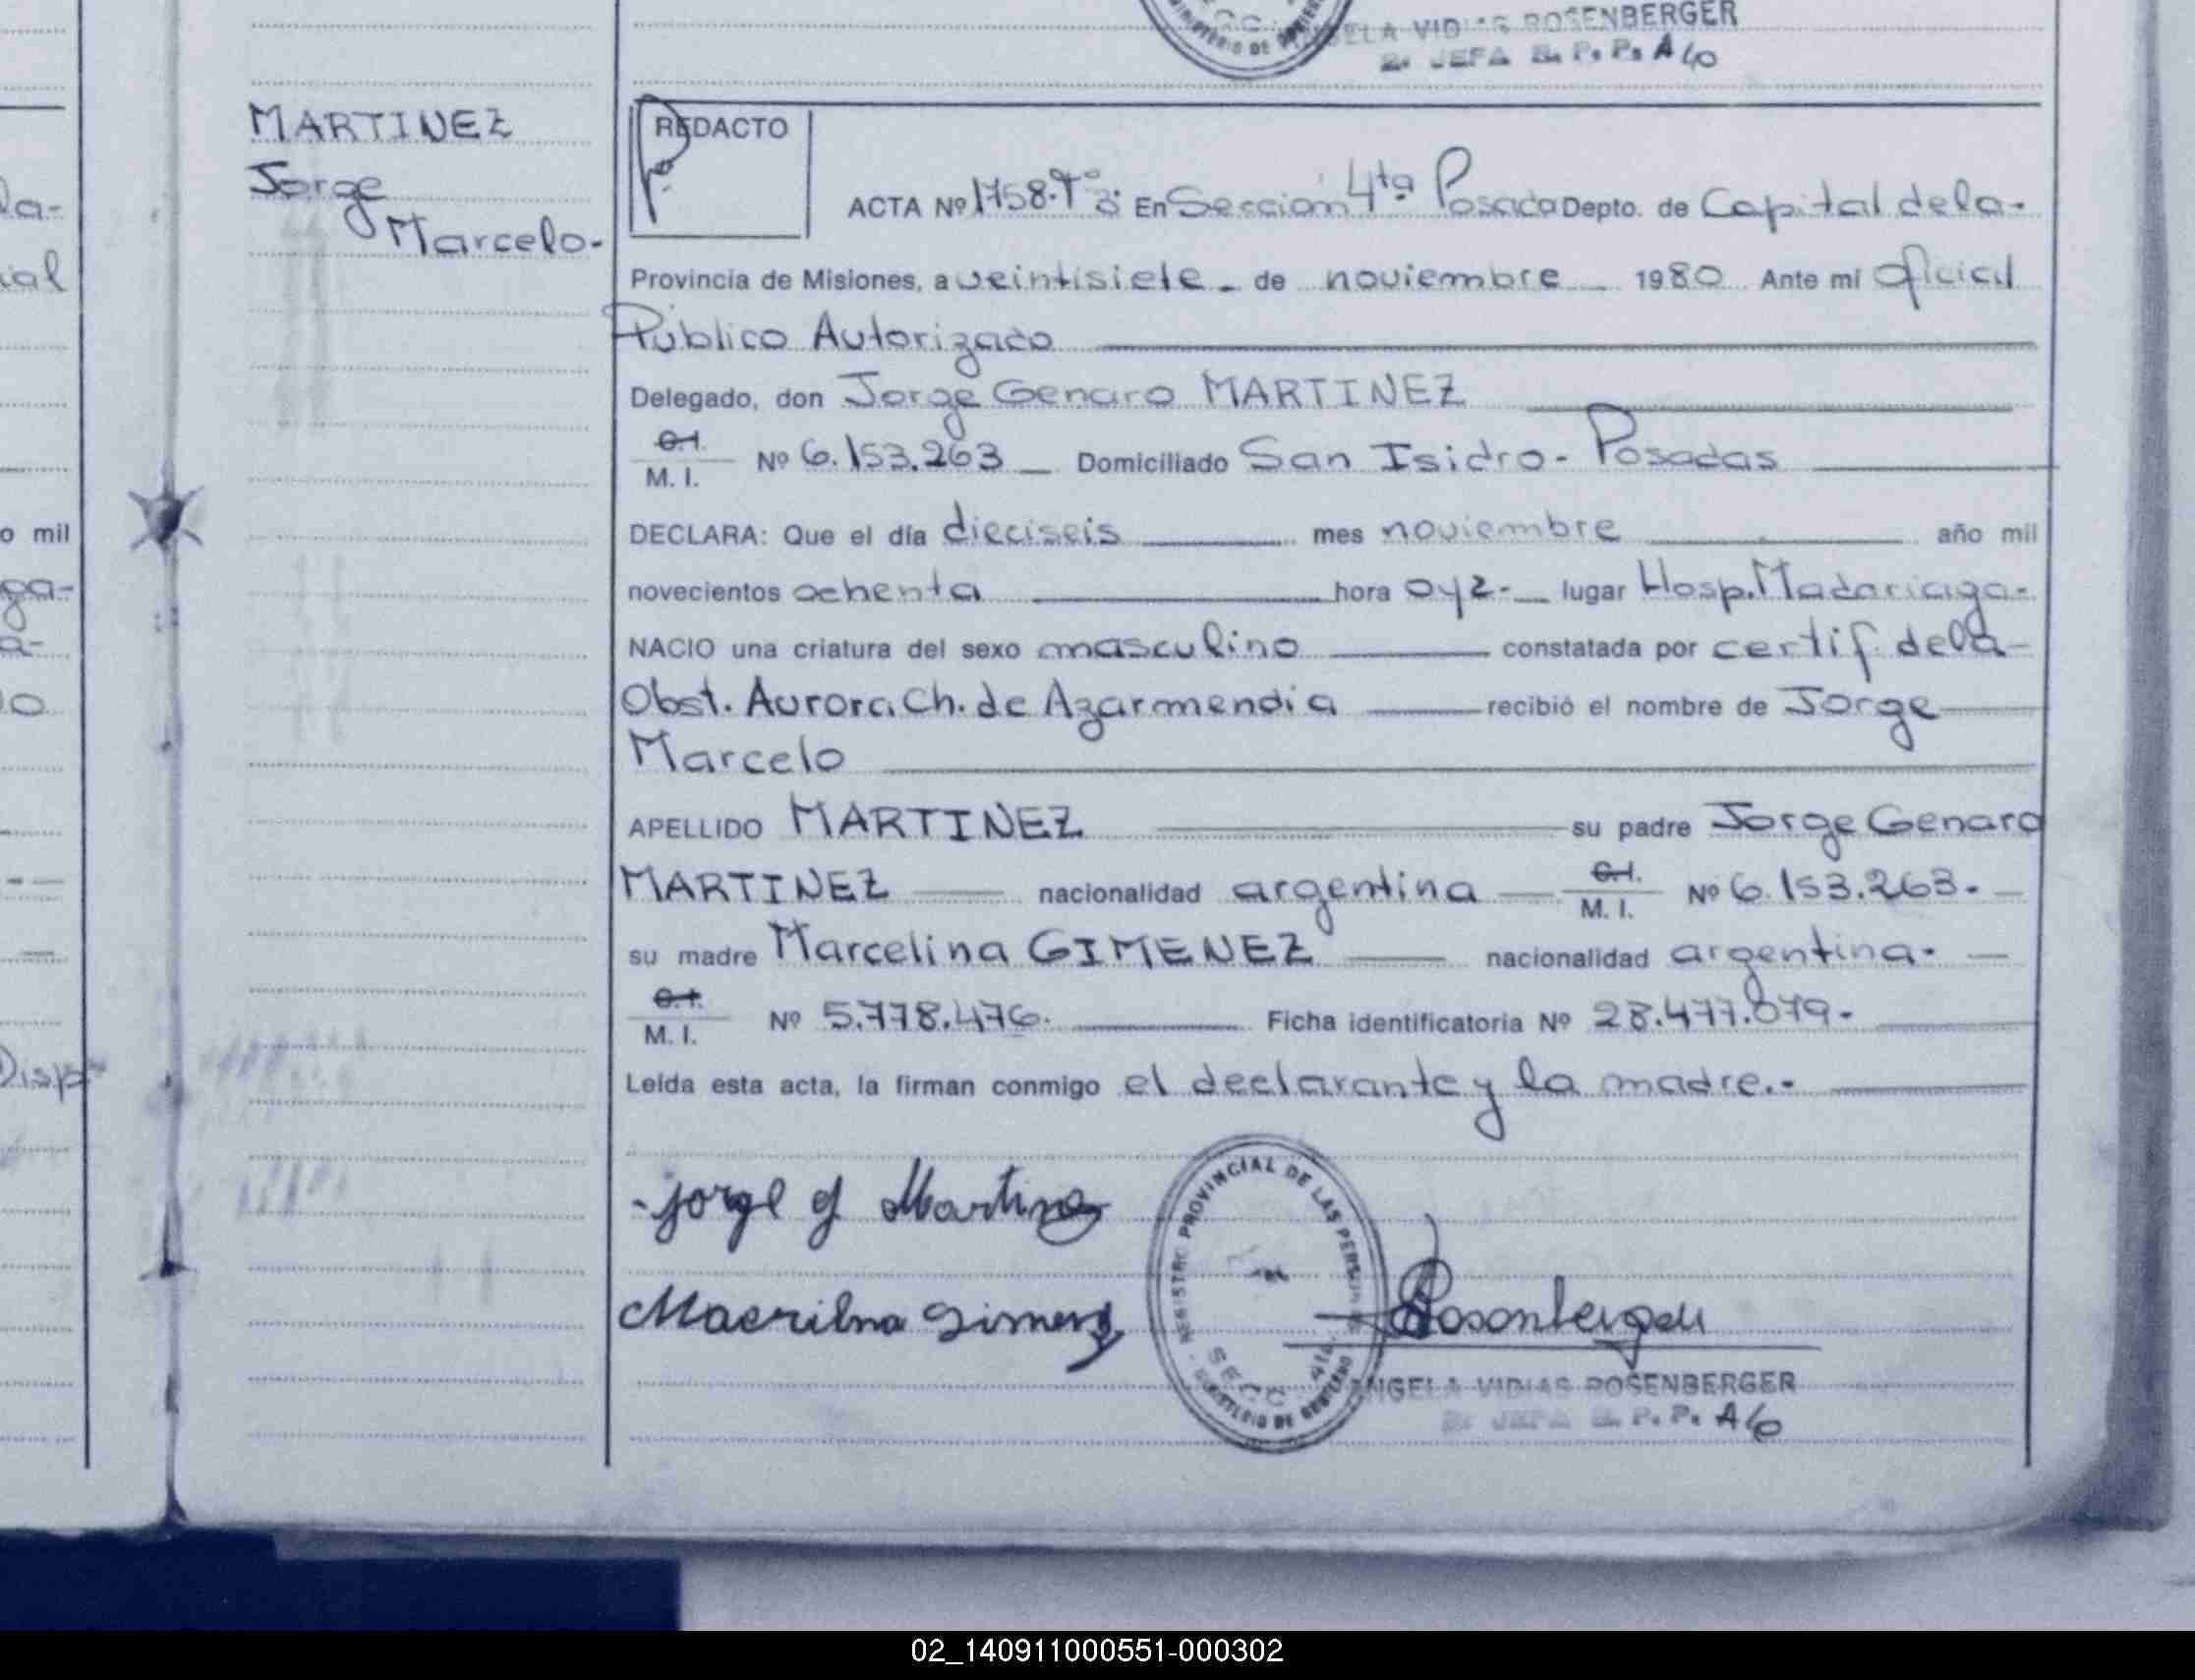 ELA VIDIAS ROSENBERGER
2. JEFA R. P. P. A/o
MARTINEZ
Jorge
Marcelo.
la-
ial
o mil
ga-
a-
o
Disp
REDACTO
ACTA Nº 1758.Tº3: En Sección 4ta Posadas Depto. de Capital de la.
Provincia de Misiones, a veintisiete - de noviembre 1980 Ante mí Oficial
Público Autorizado
Delegado, don Jorge Genaro MARTINEZ
C.I.
M. I. Nº 6.153.263 _ Domiciliado San Isidro - Posadas
DECLARA: Que el día dieciseis mes noviembre año mil
novecientos ochenta hora 0y2- lugar Hosp. Madariaga-
NACIO una criatura del sexo masculino constatada por certif. de la-
Obst. Aurora Ch. de Azarmendia recibió el nombre de Jorge
Marcelo
APELLIDO MARTINEZ su padre Jorge Genaro
MARTINEZ nacionalidad argentina C.I. M. I. Nº 6.153.263.-
su madre Marcelina GIMENEZ nacionalidad argentina. -
C.I.
M. I. Nº 5.778.476. Ficha identificatoria Nº 28.477.079.-
Leída esta acta, la firman conmigo el declarante y la madre.-
Jorge G Martinez
REGISTRO PROVINCIAL DE LAS PERSONAS
SECC. 4ta.
MINISTERIO DE GOBIERNO
Rosenberger
ANGELA VIDIAS ROSENBERGER
2. JEFA R. P. P. A/o
02_140911000551-000302